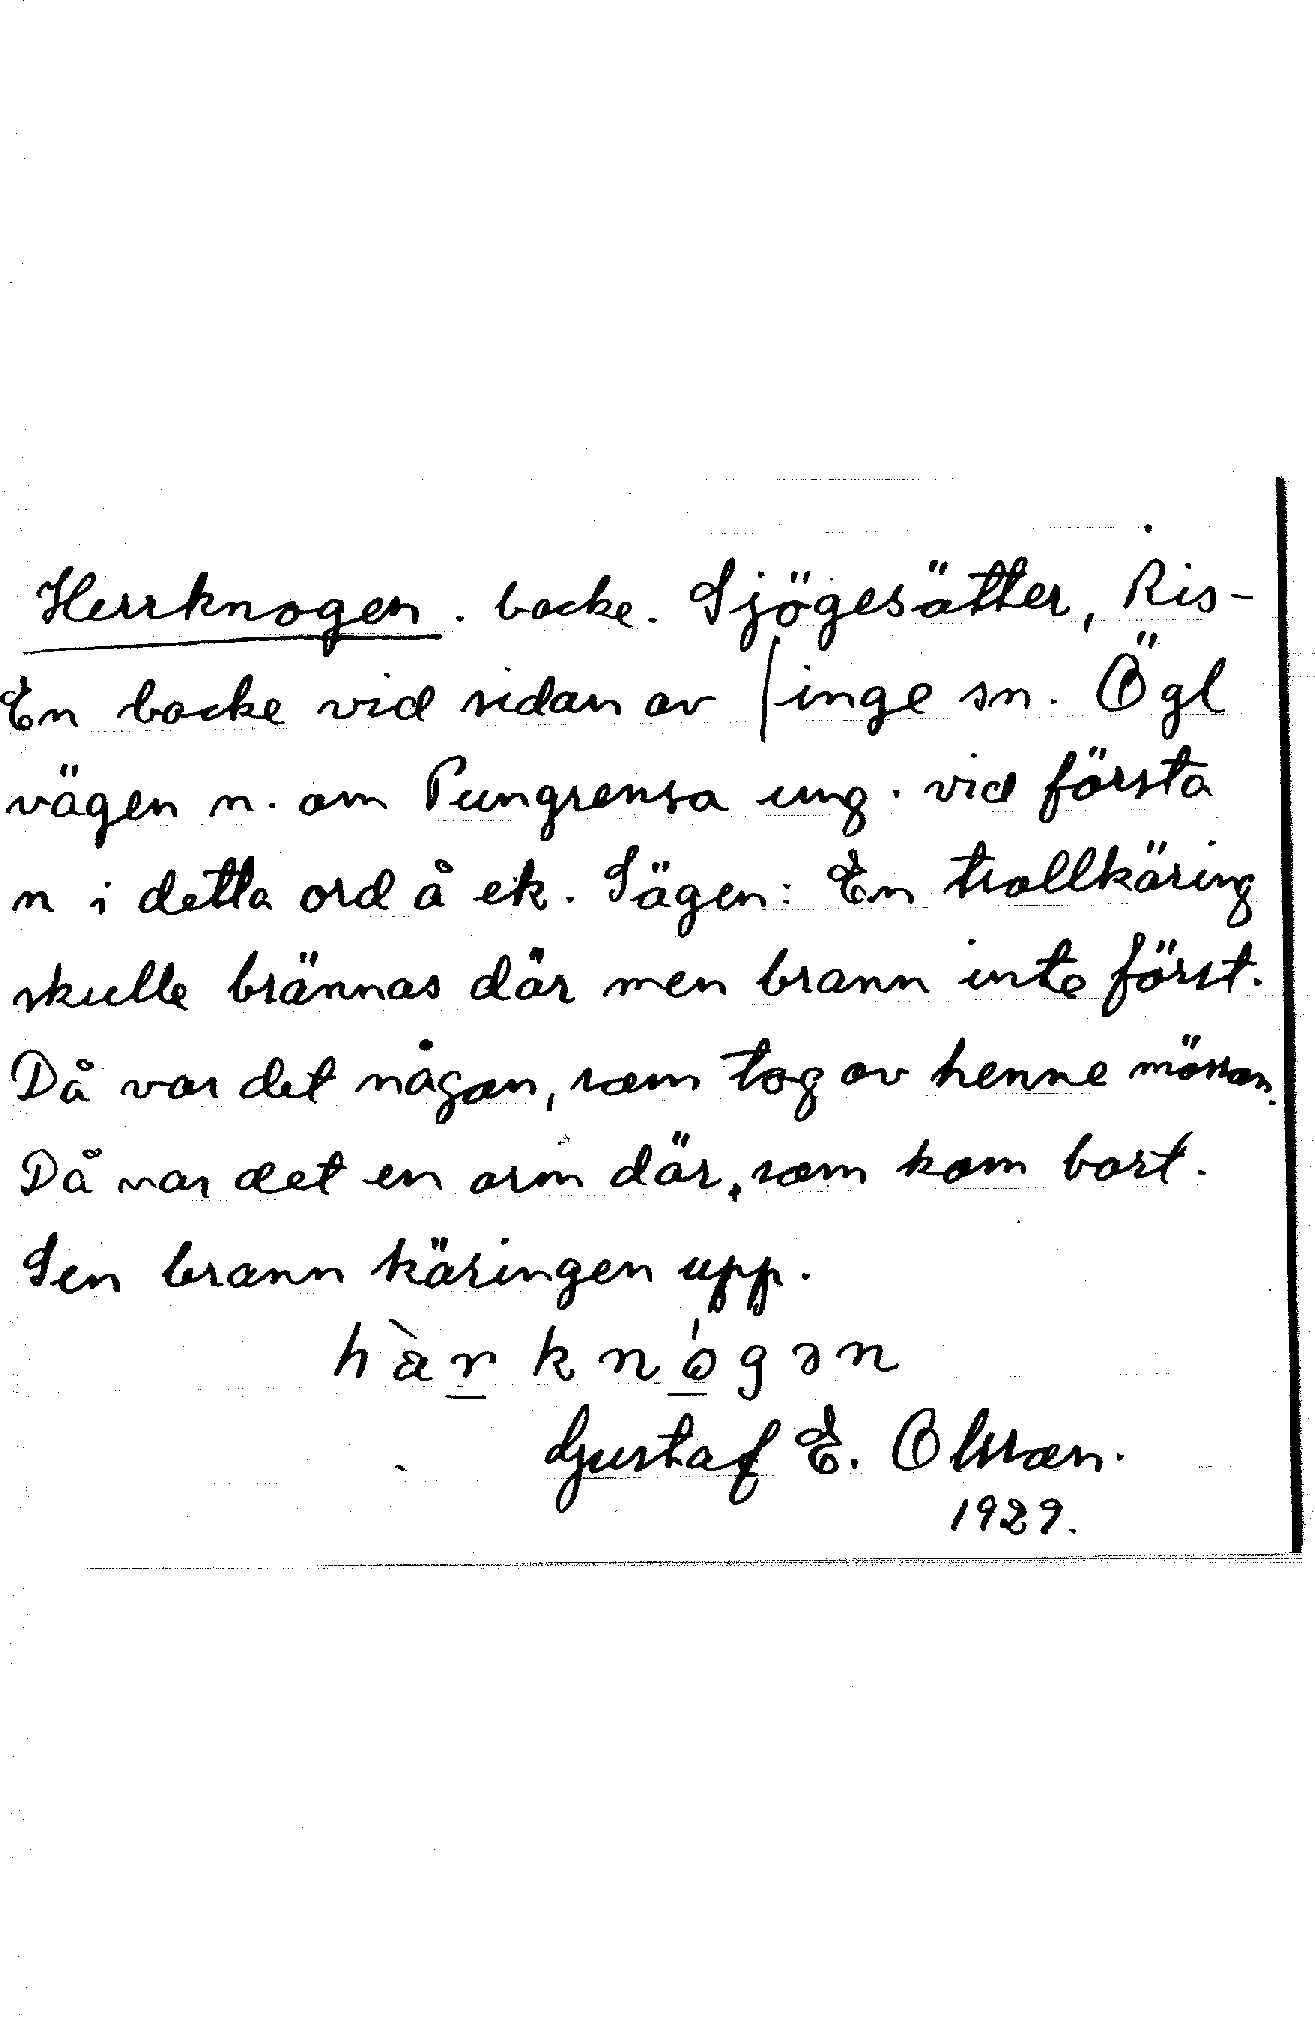 Herrknogen. backe. Sjögesätter, Ris-
En backe vid sidan av | inge sn. Ögl
vägen n. om Pungrensa ung. vid första
n i detta ord å ek. Sägen: En trollkäring
skulle brännas där men brann inte först.
Då var det någon, som tog av henne mössan.
Då var det en orm där, som kom bort.
Sen brann käringen upp.
hàr knógən
Gustaf E. Olsson.
1929.